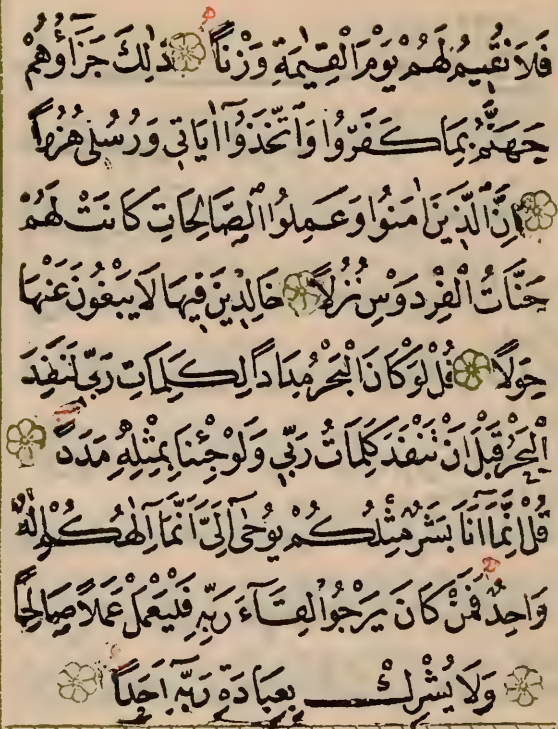 فَلَا نُقِيمُ لَهُمْ يَوْمَ الْقِيٰمَةِ وَزْنًا ذٰلِكَ جَزَآؤُهُمْ
جَهَنَّمُ بِمَا كَفَرُوا وَاتَّخَذُوٓا اٰيَاتِي وَرُسُلِي هُزُوًا
اِنَّ الَّذِينَ اٰمَنُوا وَعَمِلُوا الصَّالِحَاتِ كَانَتْ لَهُمْ
جَنَّاتُ الْفِرْدَوْسِ نُزُلًا خَالِدِينَ فِيهَا لَا يَبْغُونَ عَنْهَا
حِوَلًا قُلْ لَوْ كَانَ الْبَحْرُ مِدَادًا لِكَلِمَاتِ رَبِّي لَنَفِدَ
الْبَحْرُ قَبْلَ اَنْ تَنْفَدَ كَلِمَاتُ رَبِّي وَلَوْ جِئْنَا بِمِثْلِهِ مَدَدًا
قُلْ اِنَّمَآ اَنَا بَشَرٌ مِثْلُكُمْ يُوحٰىٓ اِلَيَّ اَنَّمَآ اِلٰهُكُمْ اِلٰهٌ
وَاحِدٌ فَمَنْ كَانَ يَرْجُوا لِقَآءَ رَبِّهِ فَلْيَعْمَلْ عَمَلًا صَالِحًا
وَلَا يُشْرِكْ بِعِبَادَةِ رَبِّهِٓ اَحَدًا